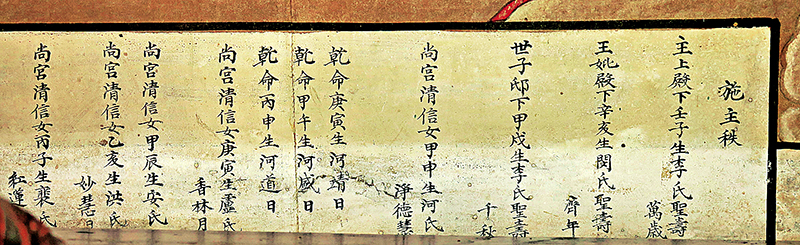 施主秩
主上殿下壬子生李氏聖壽萬歲
王妣殿下辛亥生閔氏聖壽齊年
世子邸下甲戌生李氏聖壽千秋
尚宮清信女甲申生河氏淨德慧
乾命庚寅生河靖日
乾命甲午生河盛日
乾命丙申生河道日
尚宮清信女庚寅生盧氏香林月
尚宮清信女甲辰生安氏
尚宮清信女乙亥生洪氏妙慧日
尚宮清信女丙子生裵氏紅蓮